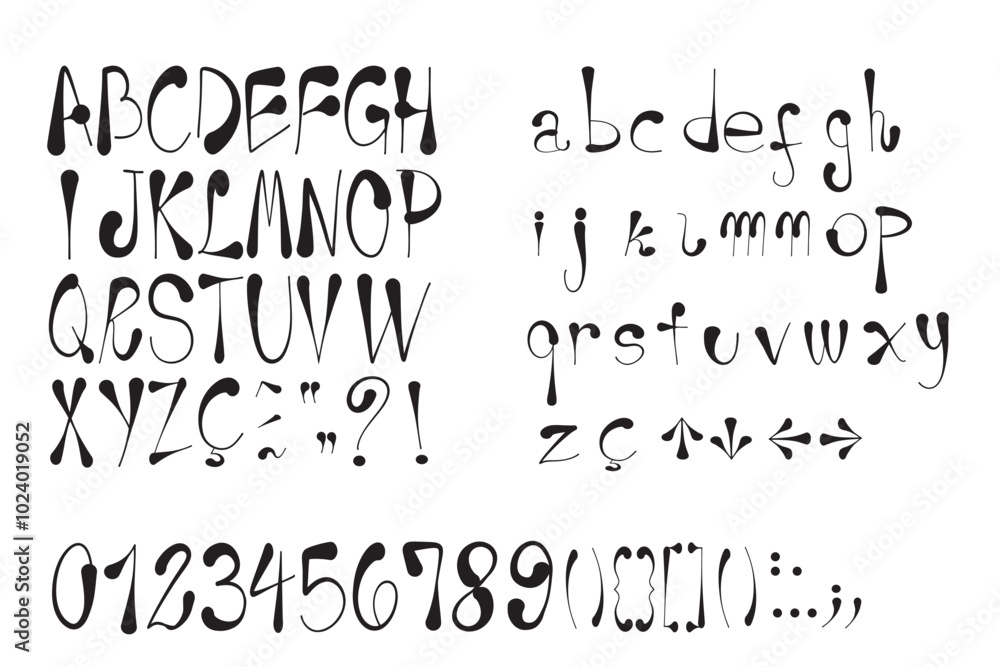 ABCDEFGH
IJKLMNOP
QRSTUVW
XYZÇ^~´`"„?!
abcdefgh
ijklmmop
qrstuvwxy
zç↑↓←→
0123456789(){}[]():...;,
Adobe Stock | #1024019052